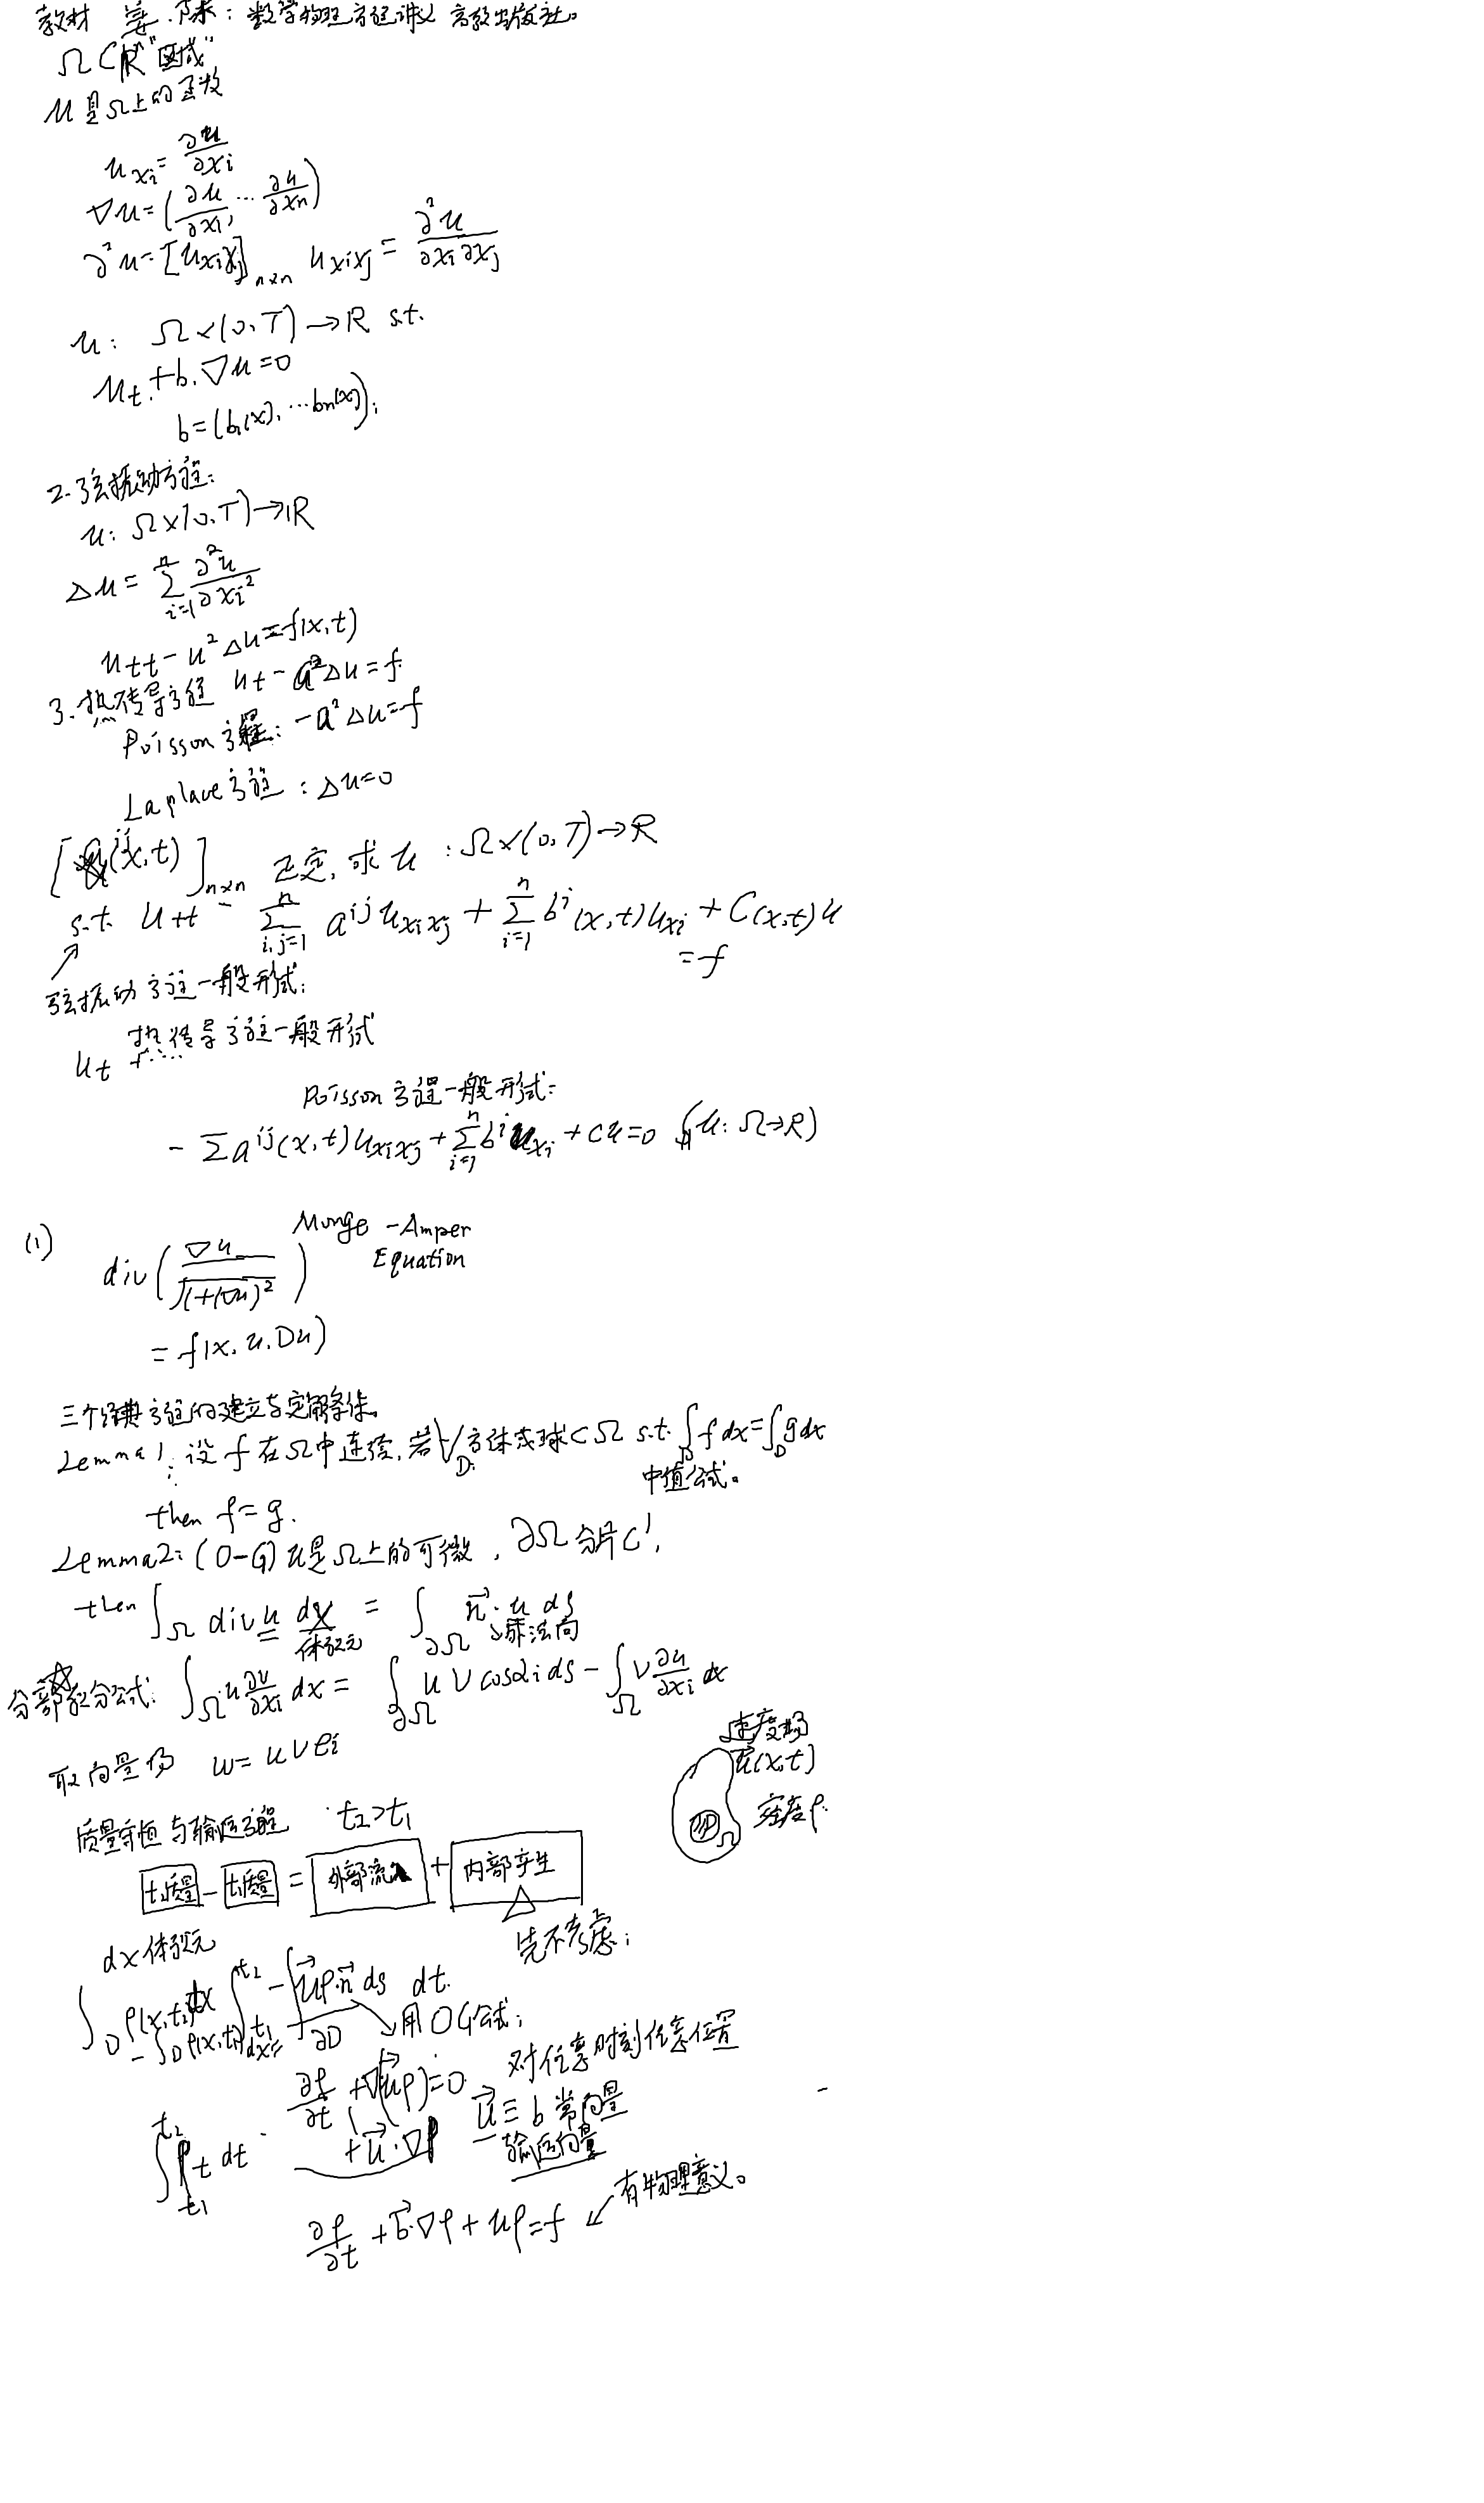 教材 姜.陈:数学物理方程讲义 高教出版社。
Ω⊂Rⁿ"区域"
u是Ω上的函数
u_{xi}=∂u/∂xi
∇u=(∂u/∂x1, … ∂u/∂xn)
∂²u=[u_{xixj}]_{n×n} u_{xixj}=∂²u/∂xi∂xj
u: Ω×(0,T)→R s.t.
u_t+b.∇u=0
b=(b1(x), …bn(x));
2.弦振动方程:
u: Ω×(0,T)→R
Δu=∑_{i=1}^{n} ∂²u/∂xi²
u_{tt}-u²Δu=f(x,t)
3.热传导方程 u_t-a²Δu=f.
Poisson方程:-a²Δu=f
Laplace方程:Δu=0
[a^{ij}(x,t)]_{n×n} 正定,求u:Ω×(0,T)→R
s.t. u_{tt}-∑_{i,j=1}^{n} a^{ij}u_{xixj}+∑_{i=1}^{n} b^i(x,t)u_{xi}+C(x,t)u
=f
弦振动方程一般形式:
热传导方程一般形式
u_t+……
Poisson方程一般形式:
-∑a^{ij}(x,t)u_{xixj}+∑_{i=1}^{n} b^i u_{xi}+cu=0 (u:Ω→R)
(1) Munge-Amper
Equation
div(∇u/√(1+|∇u|)²)
=f(x,u,Du)
三个经典方程的建立与定解条件。
Lemma1: 设f在Ω中连续,若∀D方体或球⊂Ω s.t.∫_D f dx=∫_D g dx
中值公式。
then f=g.
Lemma2:(O-G)u是Ω上的可微,∂Ω分片C¹,
then ∫_Ω div u dx=∫_{∂Ω} n⃗·u ds
体积元
乘法向
分部积分公式:∫_Ω u ∂v/∂xi dx=∫_{∂Ω} uv cosαi ds-∫_Ω v ∂u/∂xi dx
取向量场 w=uvei
速度场
u⃗(x,t)
密度ρ.
D
Ω
质量守恒与输运方程 t2>t1
t2质量-t1质量=外部流入+内部产生
先不考虑;
dx体积元
∫_D ρ(x,t2)dx-∫_D ρ(x,t1)dx=∫_{t1}^{t2} -∫_{∂D} u⃗ρ·n⃗ ds dt.
用OG公式;
∂ρ/∂t+∇(u⃗ρ)=0. 对任意时刻任意位置
∫_{t1}^{t2} ρ_t dt +u⃗·∇ρ u⃗≡b常向量
输运向量
∂ρ/∂t+b⃗·∇ρ+uρ=f ↙有物理意义。